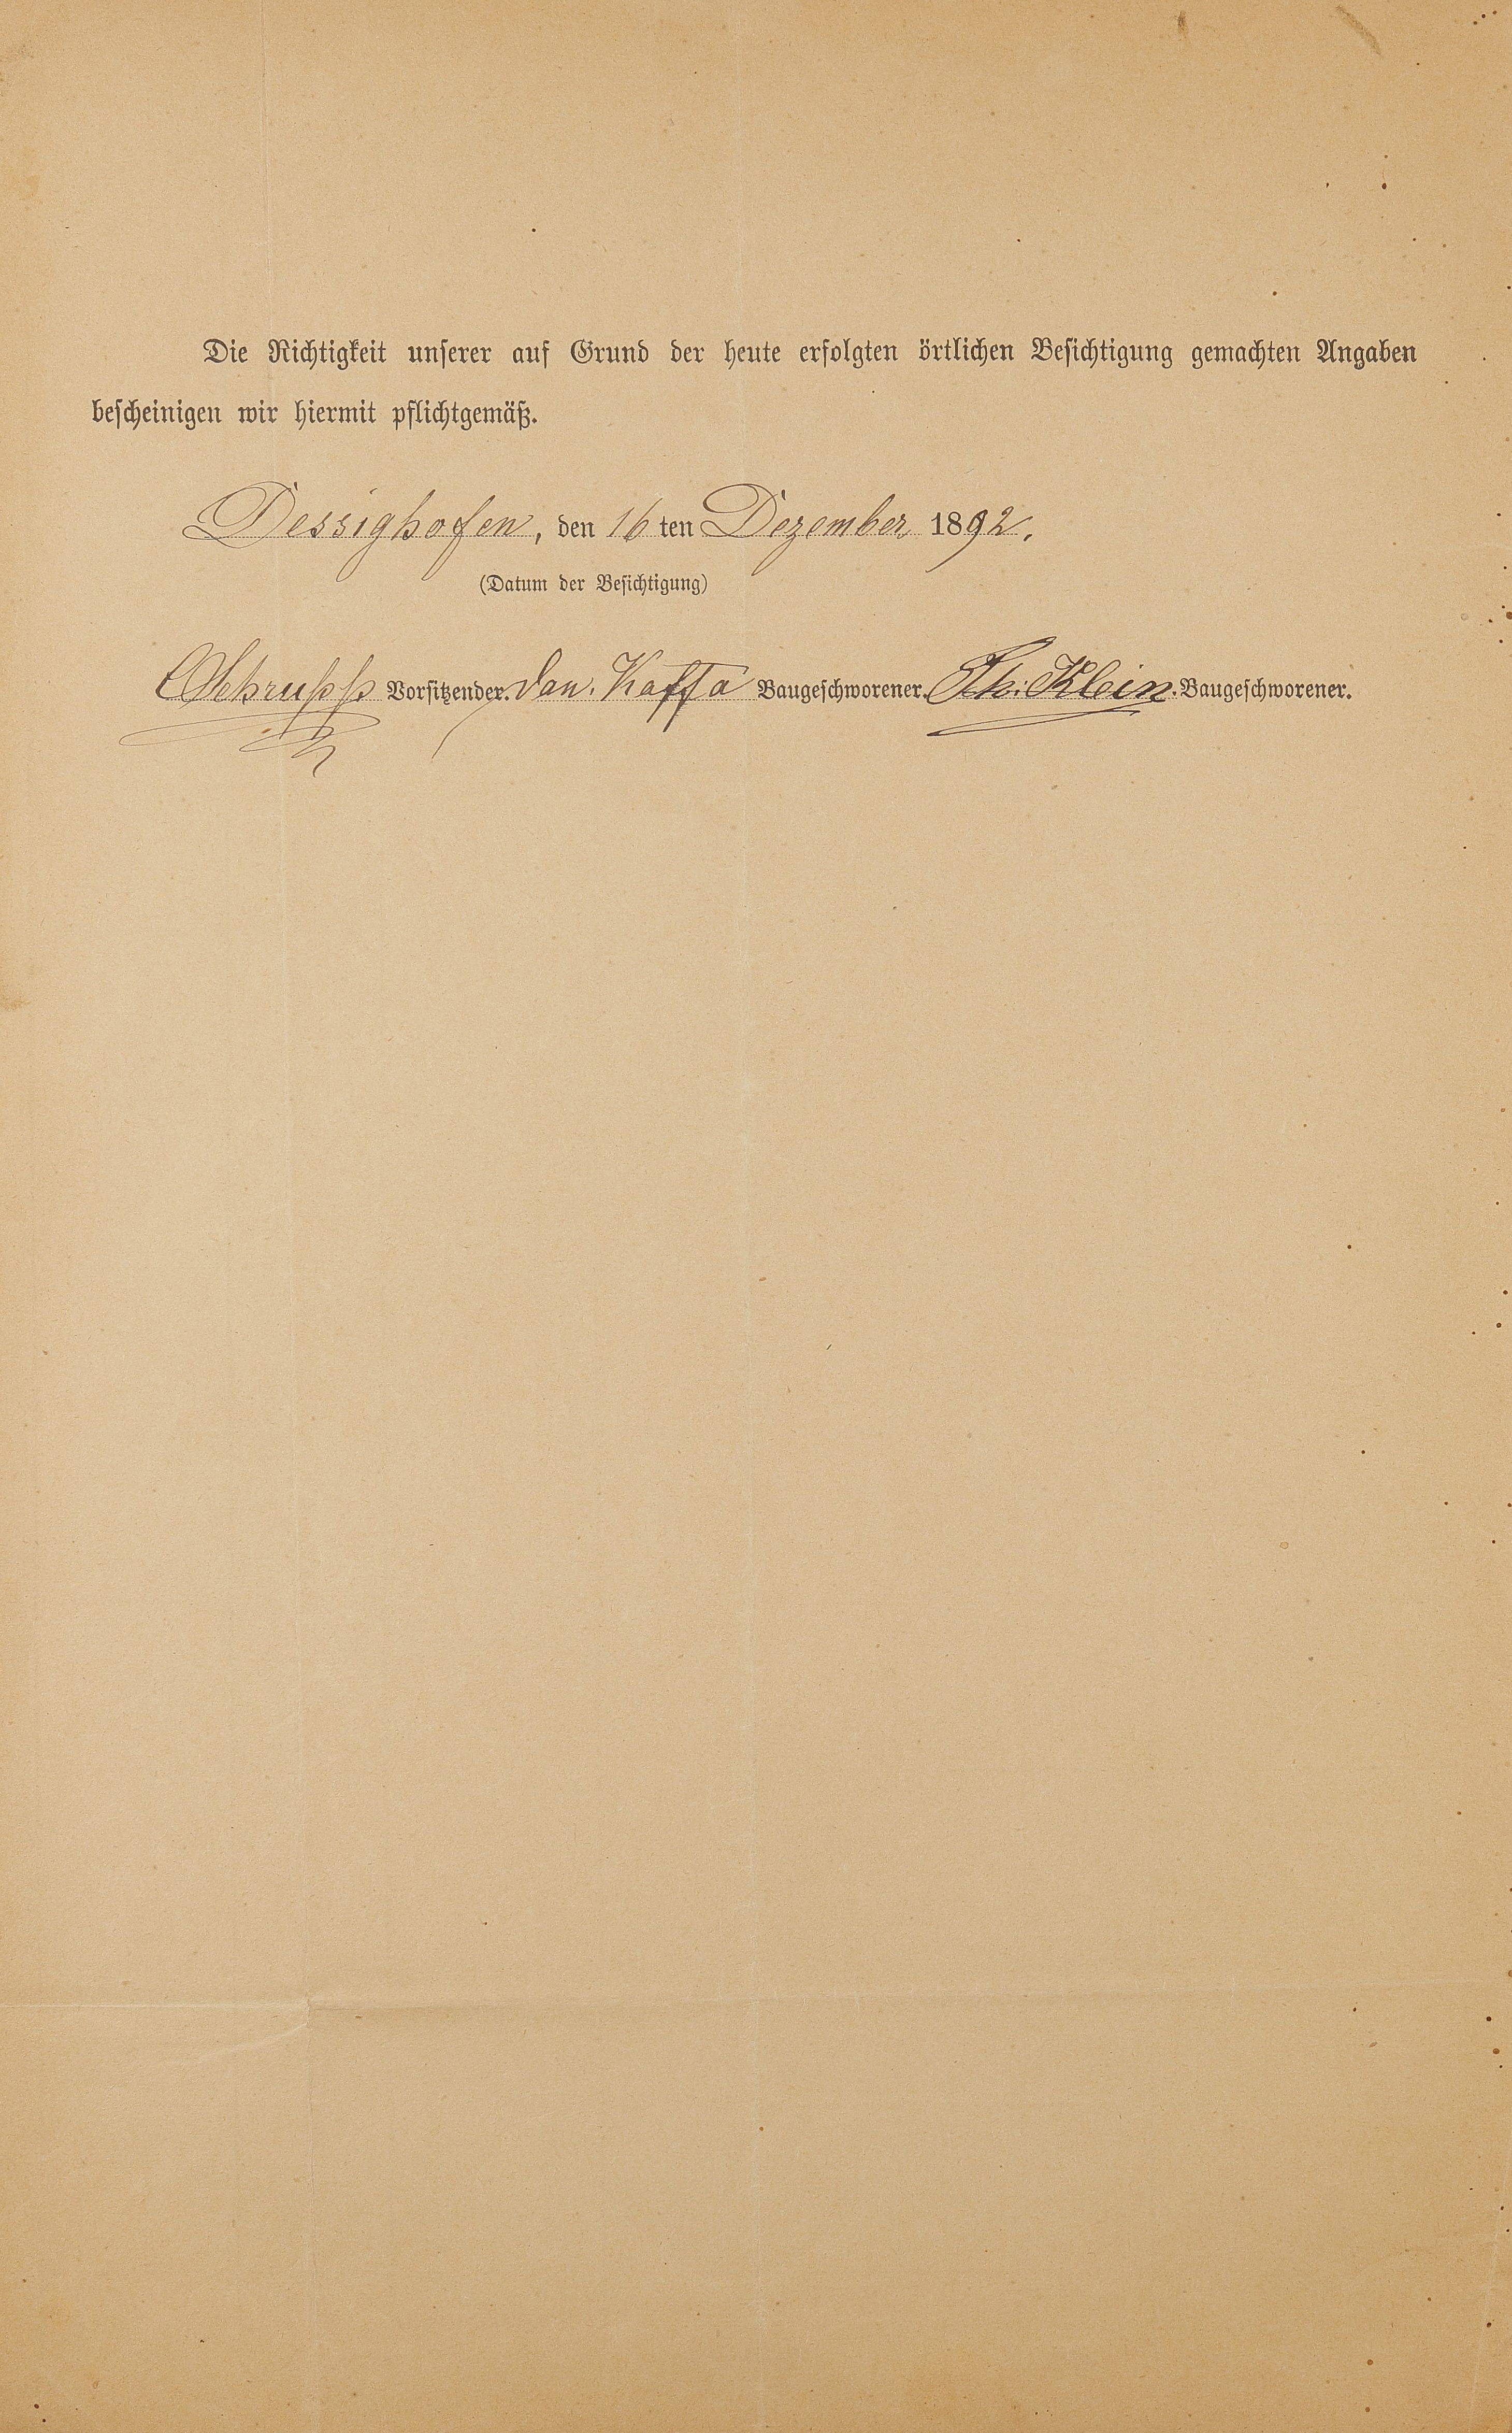 Die Richtigkeit unserer auf Grund der heute erfolgten örtlichen Besichtigung gemachten Angaben
bescheinigen wir hiermit pflichtgemäß.
Dessighofen, den 16ten Dezember 1892.
(Datum der Besichtigung)
Schrupp Vorsitzender. Dan. Kaffa Baugeschworener. Ph. Klein. Baugeschworener.